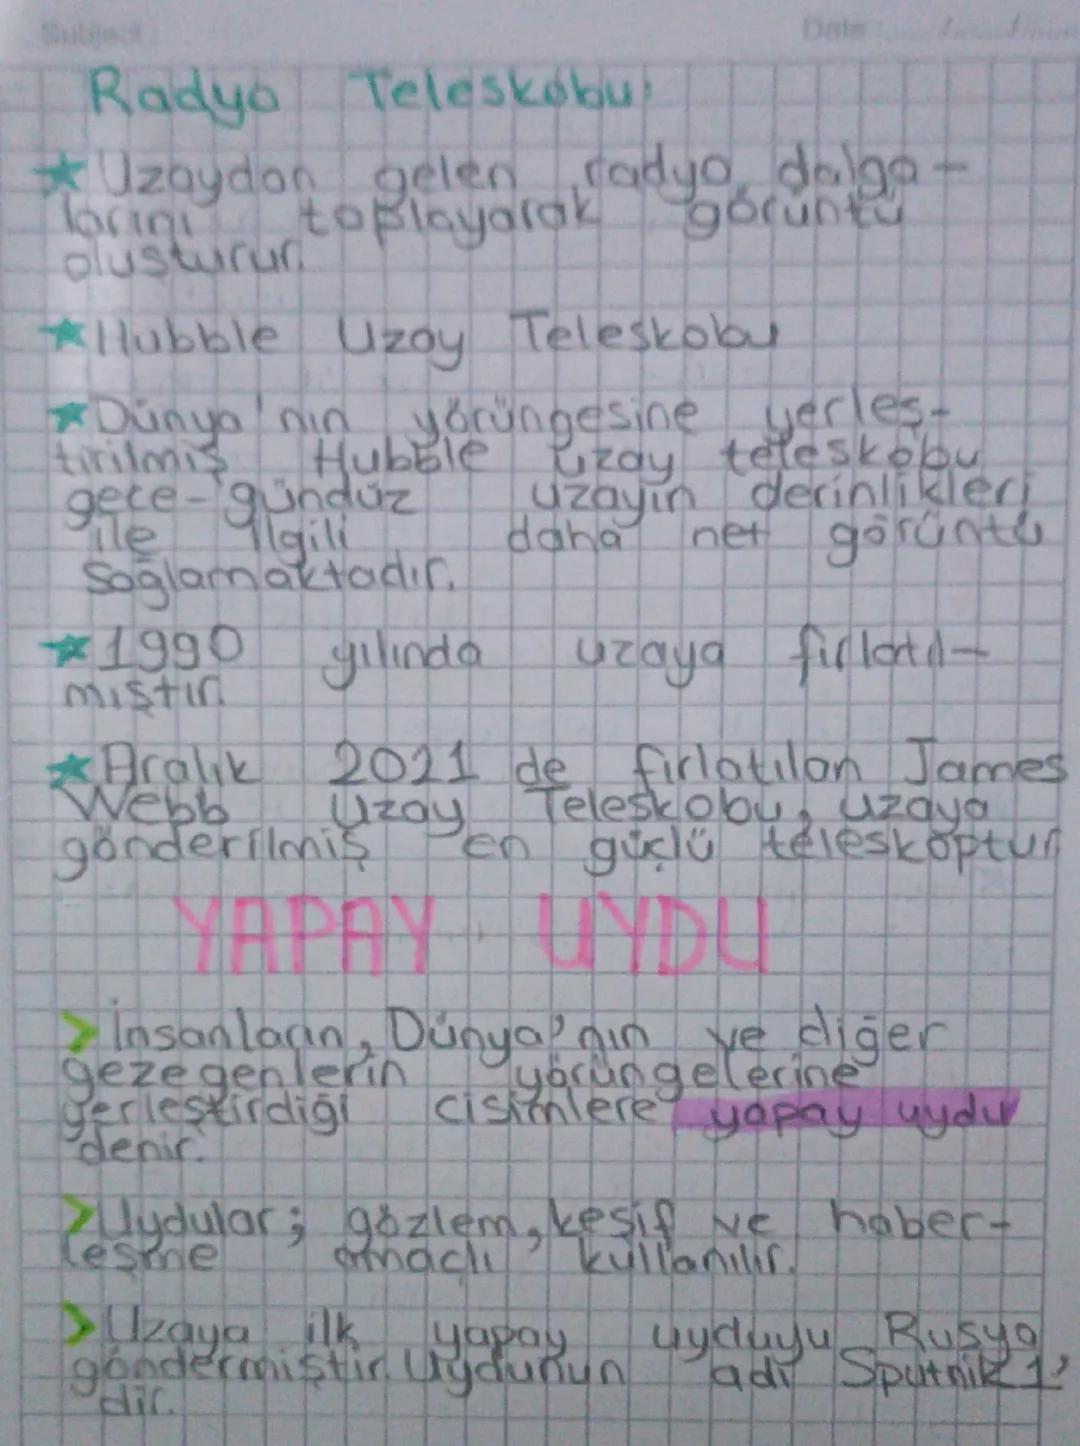 Subject:
Date:
Radyo Teleskobu:
★Uzaydan gelen radyo dalga-
larını toplayarak görüntü
oluşturur.
★Hubble Uzay Teleskobu
★Dünya'nın yörüngesine yerleş-
tirilmiş Hubble uzay teleskobu
gece-gündüz uzayın derinlikleri
ile ilgili daha net görüntü
sağlamaktadır.
★1990 yılında uzaya fırlatıl-
mıştır.
★Aralık 2021 de fırlatılan James
Webb Uzay Teleskobu, uzaya
gönderilmiş en güçlü teleskoptur
YAPAY UYDU
>İnsanların, Dünya'nın ve diğer
gezegenlerin yörüngelerine
yerleştirdiği cisimlere yapay uydu
denir.
>Uydular; gözlem, keşif ve haber-
leşme amaçlı kullanılır.
>Uzaya ilk yapay uyduyu Rusya
göndermiştir. Uydunun adı Sputnik 1'
dir.